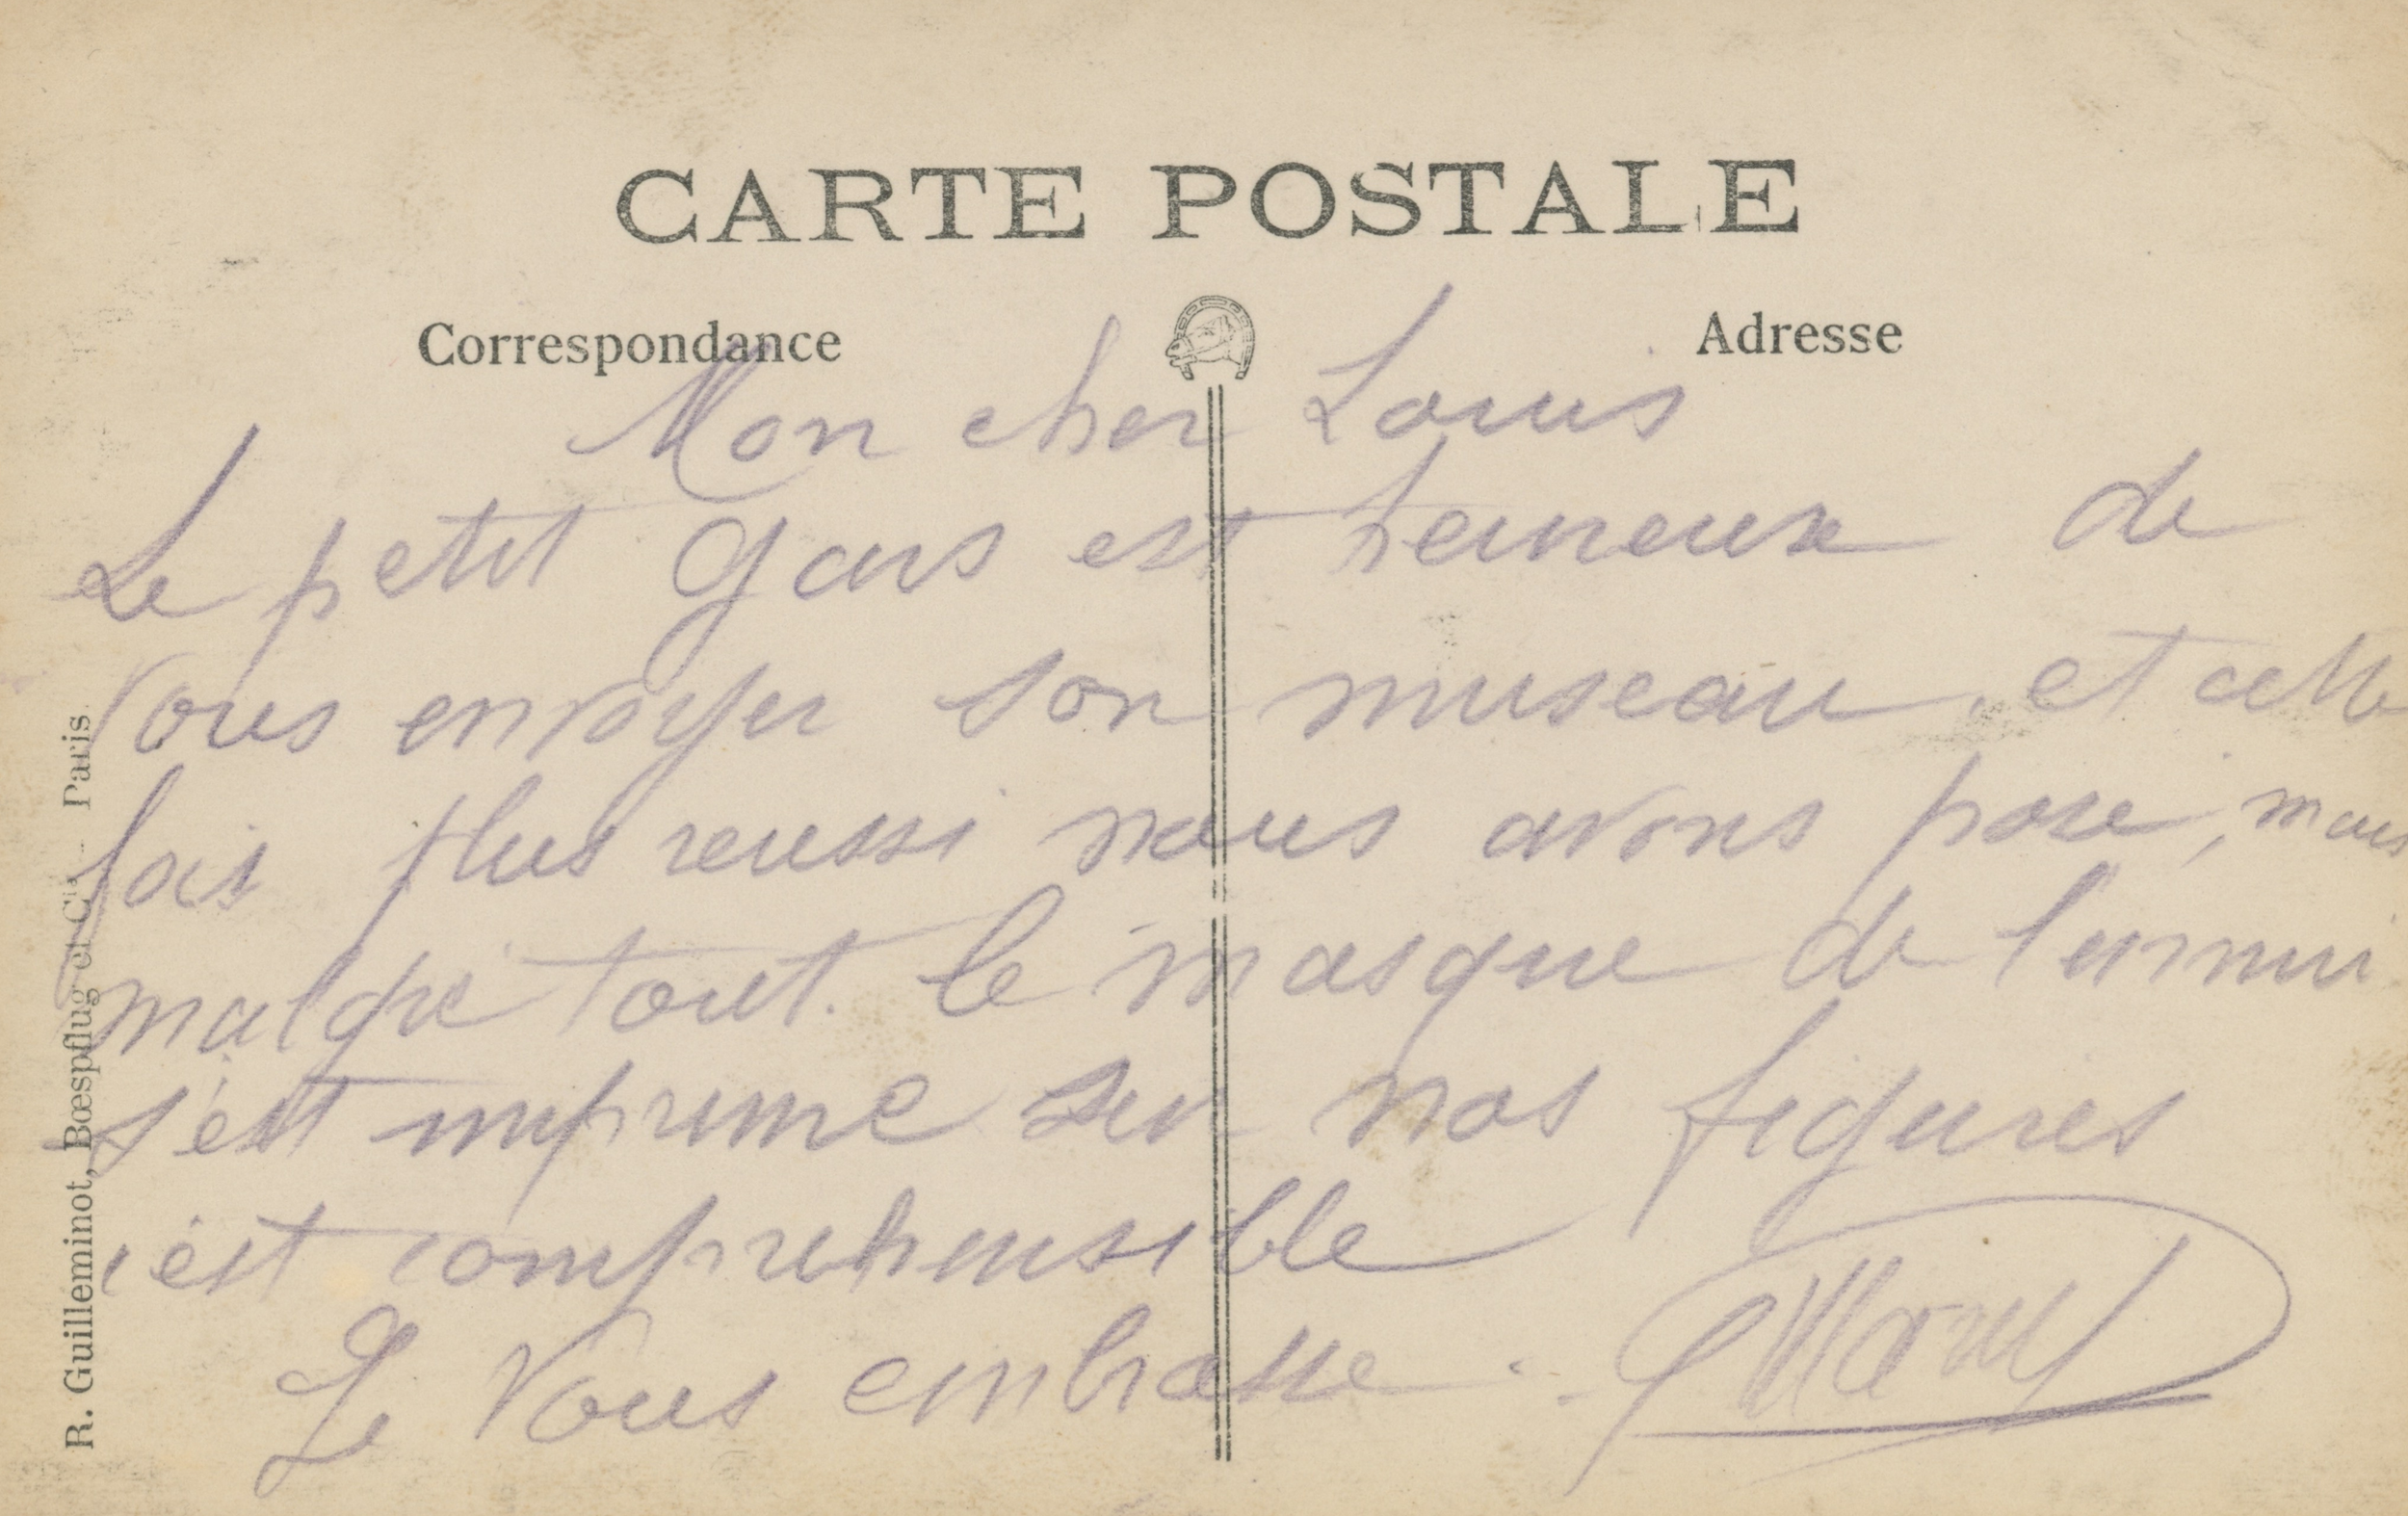 CARTE POSTALE
Correspondance
Adresse
Mon cher Louis
Le petit gars est heureux de
vous envoyer son museau. et cette
fois plus reussi nous avons posé, mais
malgré tout. le masque de l'ennui
s'est imprimé sur nos figures
c'est comprehensible
Je vous embrasse.
R. Guilleminot, Bœspflug et Cie - Paris